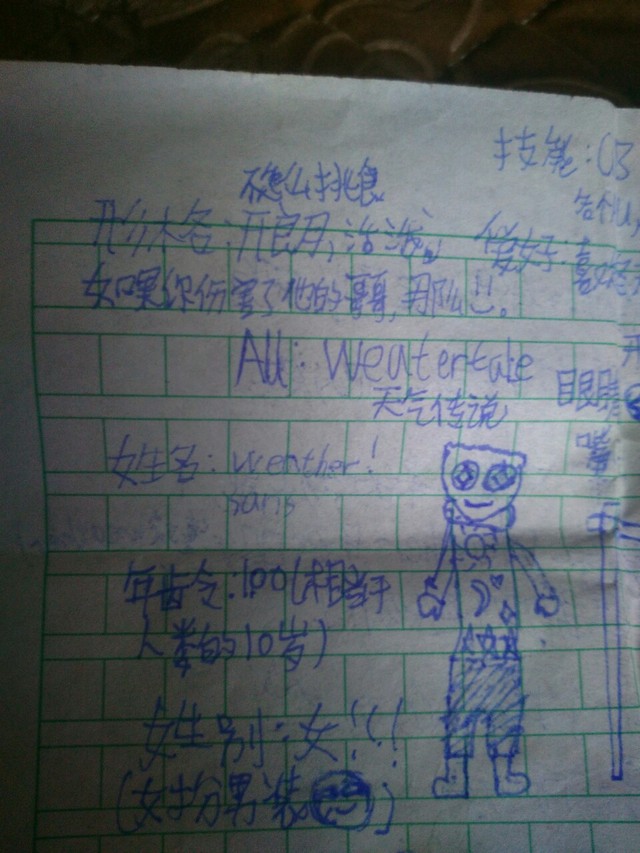 技能:
不怎么挑食
性格:开良月,活泼。 爱好:喜欢
如果你伤害了他的哥哥,那么
All: Weatertale
天气传说
眼睛
嘴
姓名: weather!
sans
年齿令:100(相当于
人类的10岁)
性别:女!(!
(女扮男装)